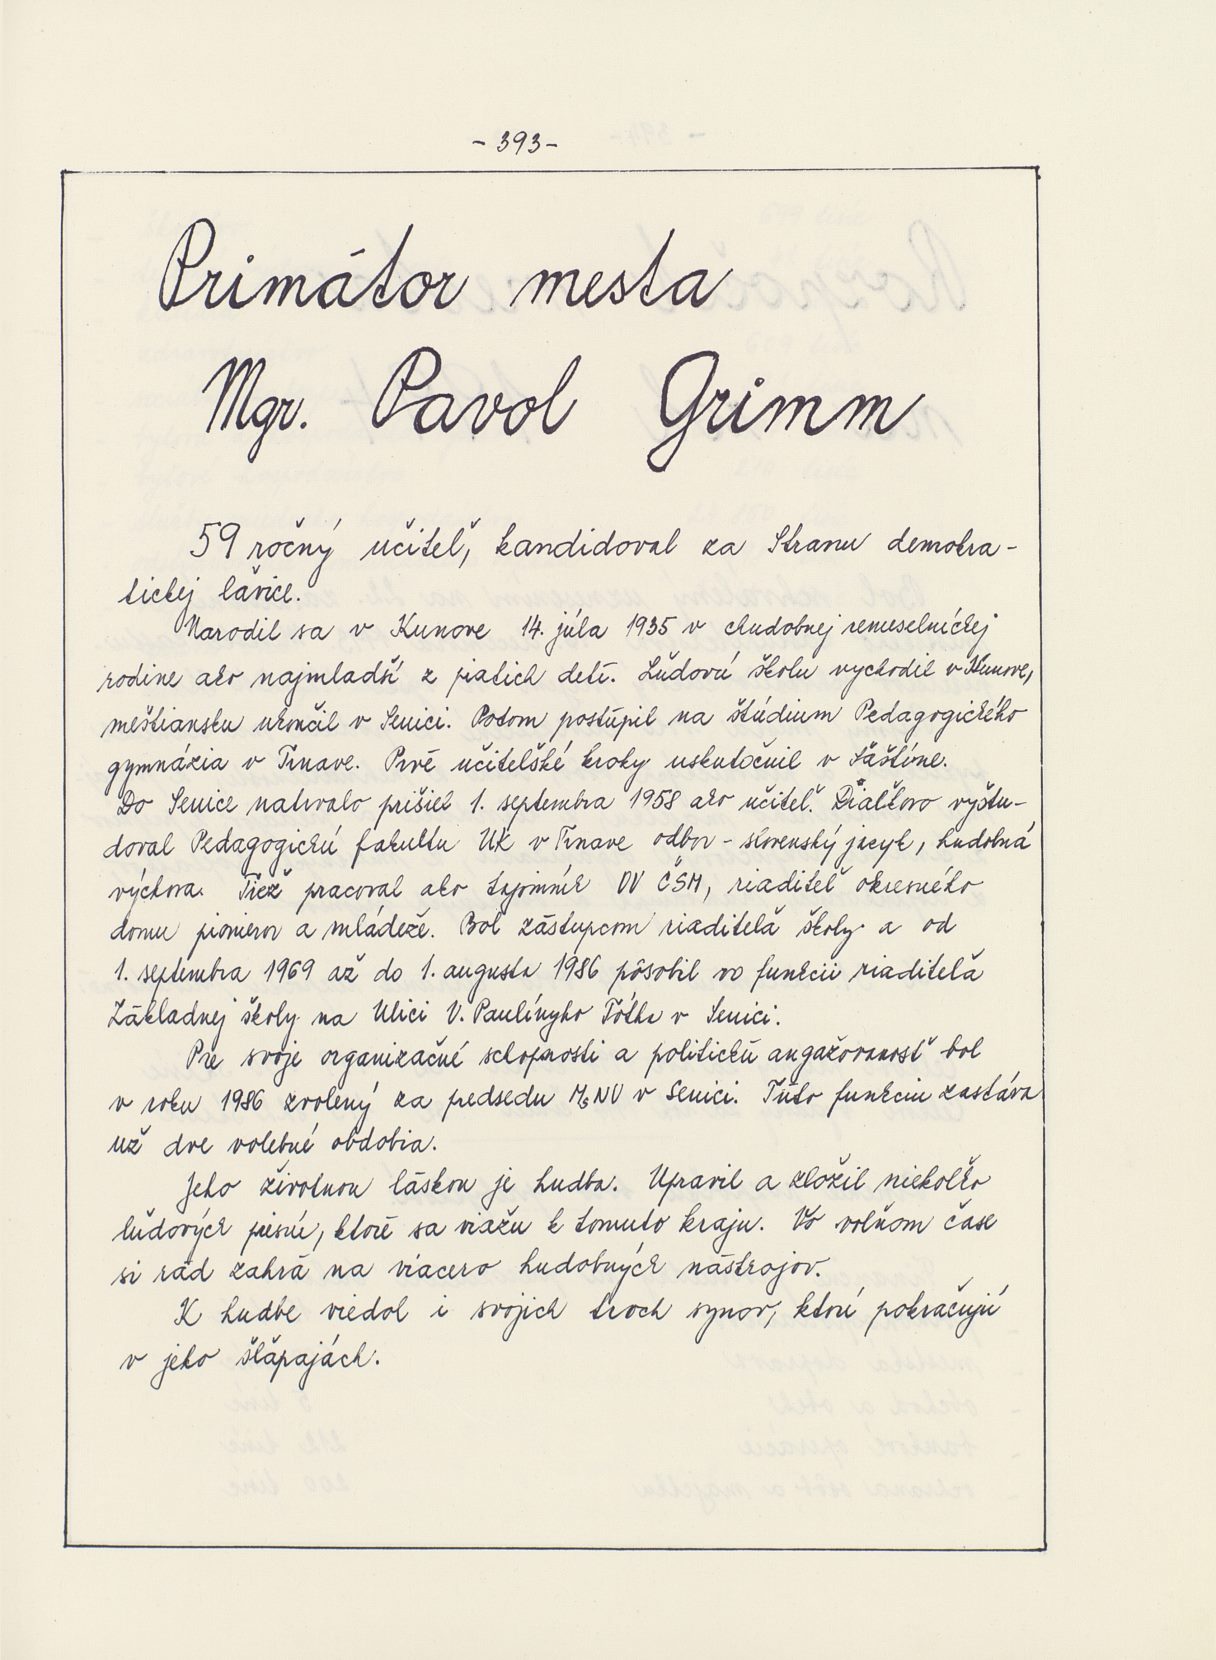 - 393 -
Primátor mesta
Mgr. Pavol Grimm
59 ročný učiteľ, kandidoval za Stranu demokra-
tickej ľavice.
Narodil sa v Kunove 14. júla 1935 v chudobnej remeselníckej
rodine ako najmladší z piatich detí. Ľudovú školu vychodil v Kunove,
meštiansku ukončil v Senici. Potom postúpil na štúdium Pedagogického
gymnázia v Trnave. Prvé učiteľské kroky uskutočnil v Šaštíne.
Do Senice natrvalo prišiel 1. septembra 1958 ako učiteľ. Diaľkovo vyštu-
doval Pedagogickú fakultu UK v Trnave odbor - slovenský jazyk, hudobná
výchova. Tiež pracoval ako tajomník OV ČSM, riaditeľ okresného
domu pionierov a mládeže. Bol zástupcom riaditeľa školy a od
1. septembra 1969 až do 1. augusta 1986 pôsobil vo funkcii riaditeľa
Základnej školy na Ulici V. Paulínyho Tótha v Senici.
Pre svoje organizačné schopnosti a politickú angažovanosť bol
v roku 1986 zvolený za predsedu MsNV v Senici. Túto funkciu zastáva
už dve volebné obdobia.
Jeho životnou láskou je hudba. Upravil a zložil niekoľko
ľudových piesní, ktoré sa viažu k tomuto kraju. Vo voľnom čase
si rád zahrá na viacero hudobných nástrojov.
K hudbe viedol i svojich troch synov, ktorí pokračujú
v jeho šľapajách.